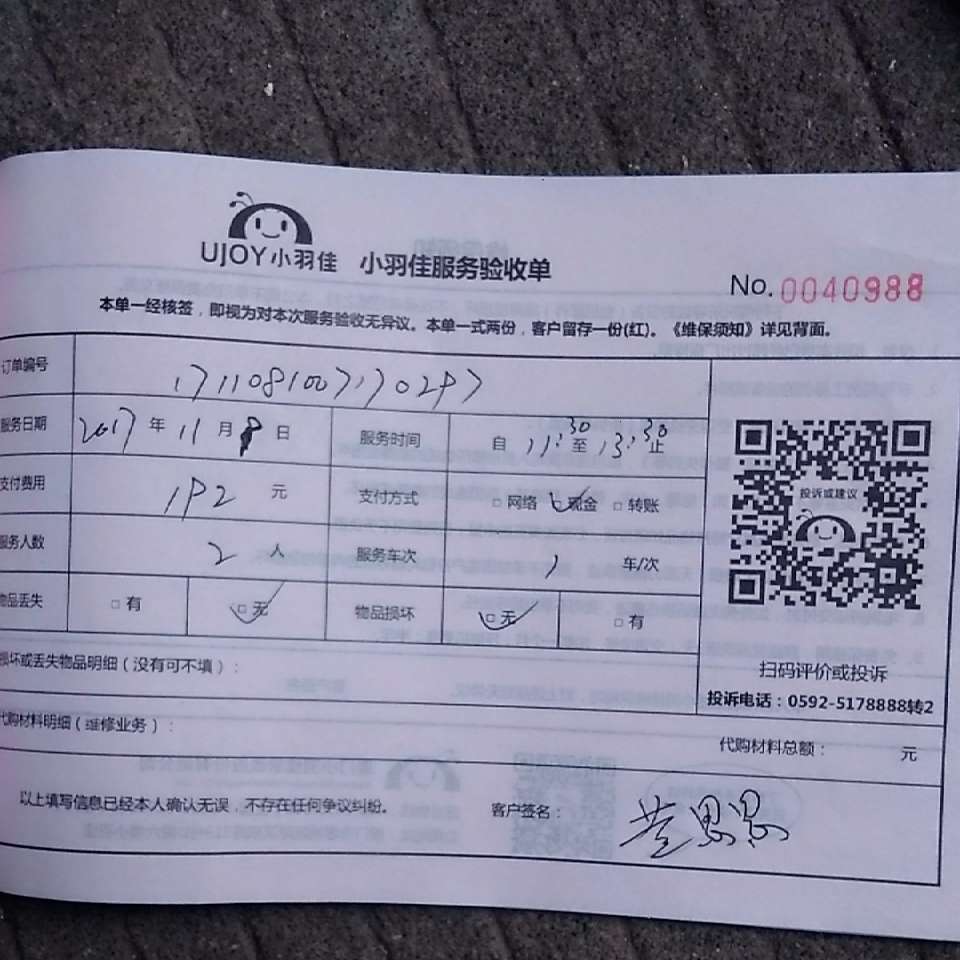 UJOY小羽佳 小羽佳服务验收单
No. 0040988
本单一经核签，即视为对本次服务验收无异议。本单一式两份，客户留存一份(红)。《维保须知》详见背面。
订单编号
服务日期 2017 年 11 月 8 日 服务时间 自 11:30 至 13:30 止
支付费用 192 元 支付方式 □网络 □现金 □转账
服务人数 2 人 服务车次 1 车/次
物品丢失 □有 □无 物品损坏 □无 □有
投诉或建议
扫码评价或投诉
投诉电话：0592-5178888转2
损坏或丢失物品明细（没有可不填）：
代购材料明细（维修业务）： 代购材料总额： 元
以上填写信息已经本人确认无误，不存在任何争议纠纷。 客户签名： 黄思恩